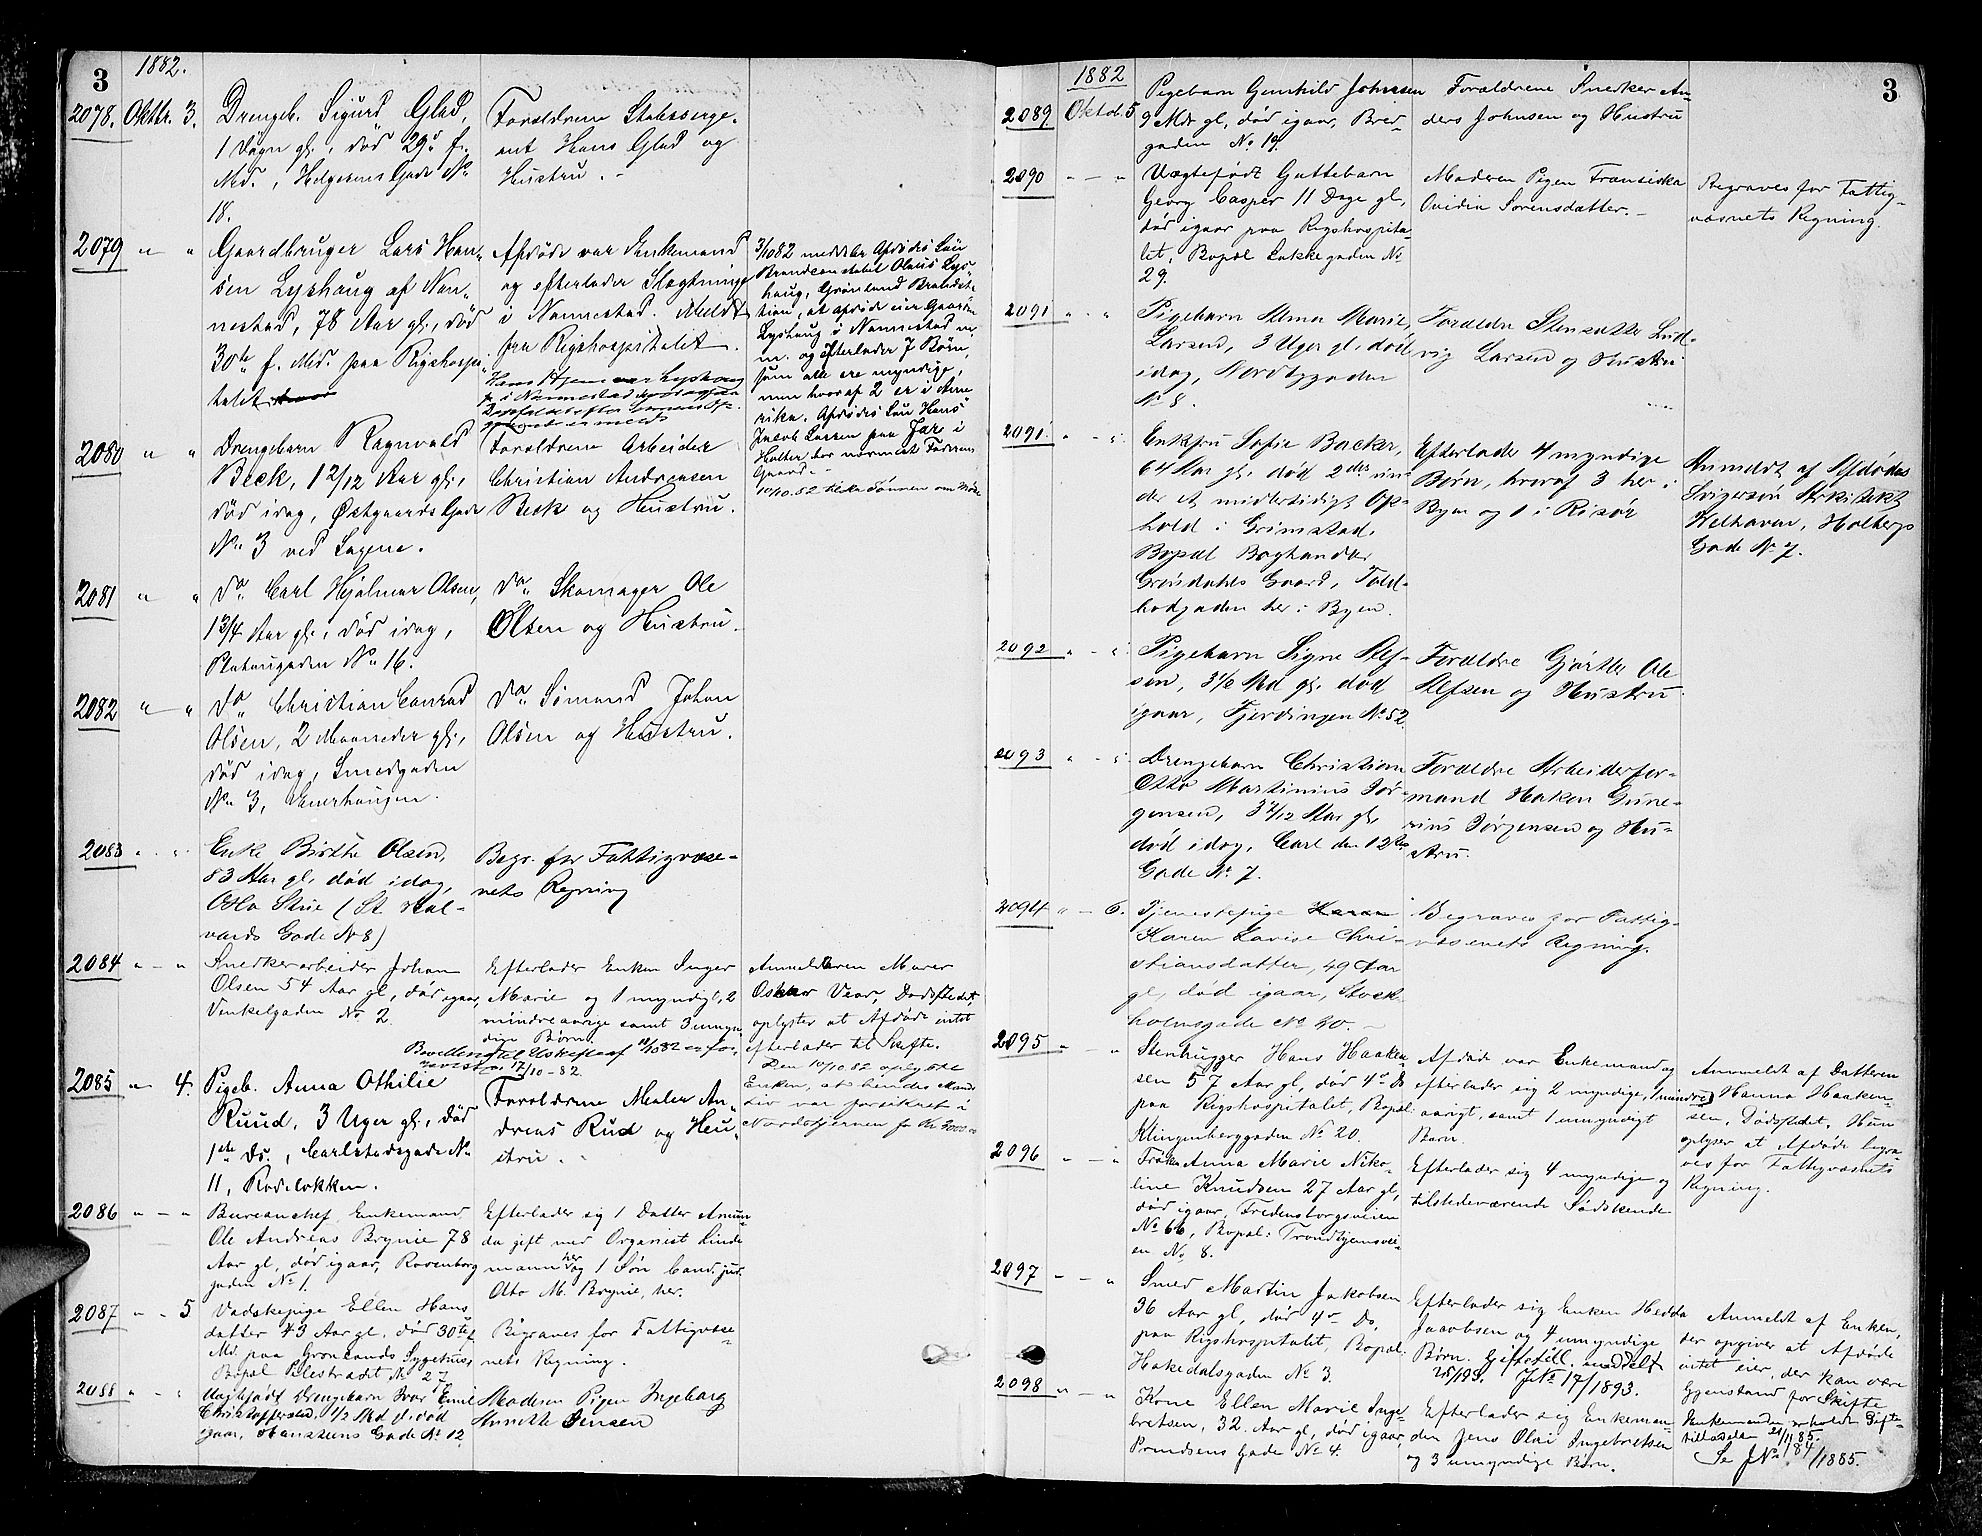 3
1882.
2078. Oktbr. 3.
Drengeb. Sigurd Glad,
1 Døgn gl., død 29de f.
Md., Helgesens Gade No
18.
Forældrene Stabssergeant
Hans Glad og
Hustru. -
2079 " "
Gaardbruger Lars Han-
sen Lyshaug af Nan-
nestad, 78 Aar gl., død
30te f. Md. paa Rigshospi-
talet
Afdøde var Enkemand
og efterlader Slægtninge
i Nannestad. Meldt
fra Rigshospitalet.
3/10 82 meddeler Afdødes Søn
Brandconstabel Olaus Lys-
haug, Grønland Brandsta-
tion, at afdøde eier Gaarden
Lyshaug i Nannestad
m. m. og efterlader 7 Børn,
som alle ere myndige,
men hvoraf 2 er i Ame-
rika. Afdødes Søn Hans
Jacob Larsen paa
Holter bor nærmest Faderens
Gaard. -
2080 " "
Drengebarn Ragnvald
Beck, 1 2/12 Aar gl.,
død idag, Østgaards Gade
No 3 ved Sagene.
Forældrene Arbeider
Christian Andreasen
Beck og Hustru.
2081 " "
Do Carl Hjalmar Olsen,
1 3/4 Aar gl., død idag,
Platougaden No 16.
Do Skomager Ole
Olsen og Hustru.
2082 " "
Do Christian Conrad
Olsen, 2 Maaneder gl.,
død idag, Smedgaden
No 3, Enerhaugen.
Do Sømand Johan
Olsen og Hustru.
2083 " "
Enke Birthe Olsen,
83 Aar gl. død idag,
Oslo Stue (St. Hal-
vards Gade No 8)
Begr. for Fattigvæse-
nets Regning
2084 " - "
Snedkerarbeider Johan
Olsen 54 Aar gl, død igaar,
Vinkelgaden No 2.
Efterlader Enken Inger
Marie og 1 myndigt, 2
mindreaarige samt 3 umyn-
dige Børn.
Anmelderen Murer
Oskar Dødsstedet,
oplyser at Afdøde intet
efterlader til Skifte.
Den 10/10 82 oplyste
Enken, at hendes Mands
Liv var forsikret i
Nordstjernen for Kr
2085 " 4.
Pigeb. Anna Othilie
Ruud, 3 Uger gl., død
1ste Ds., Carlstadgade No
11, Rodeløkken.
Forældrene Maler An-
dreas Rud og Hu-
stru. -
2086 " - "
Bureauchef, Enkemand
Ole Andreas Brynie 78
Aar gl, død igaar, Rosenborg
gaden No 1.
Efterlader sig 1 Datter Aman-
da gift med Organist Linde
mann her og 1 Søn Cand. jur.
Otto M. Brynie, her.
2087 " - 5
Vadskepige Ellen Hans
datter 43 Aar gl. død 30te f.
Md. paa Grønlands Sygehus,
Bopæl Pilestrædet No 27
Begraves for Fattigvæse-
nets Regning.
2088 " - "
Uægtefødt Drengebarn Ivar Emil
Christoffersen, 1/2 Md gl. død
igaar, Hansteens Gade No 12.
Moderen Pigen Ingeborg
Annette Jensen
3
1882
2089 Oktob. 5
Pigebarn Gunhild Johnsen
9 Mdr gl, død igaar, Bred-
gaden No 19.
Forældrene Snedker An-
ders Johnsen og Hustru
2090 " - "
Uægtefødt Guttebarn
Georg Casper 11 Dage gl,
død igaar paa Rigshospita-
let, Bopæl Lakkegaden No
29.
Moderen Pigen Fransiska
Ovidia Sørensdatter. -
Begraves for Fattig-
væsnets Regning.
2091 " - "
Pigebarn Alma Marie
Larsen, 3 Uger gl. død
idag, Nordbygaden
No 8.
Forældre Stensætter Lud-
vig Larsen og Hustru
2091. " - "
Enkefru Sofie Backer,
64 Aar gl. død 2den un-
der et midlertidigt Op-
hold i Grimstad.
Bopæl Boghandler
Grøndahls Gaard, Told-
bodgaden her i Byen.
Efterlader 4 myndige
Børn, hvoraf 3 her i
Byen og 1 i Risør
Anmeldt af Afdødes
Svigersøn Arkitekt
Welhaven, Holbergs
Gade No 7.
2092 " - "
Pigebarn Signe Alf-
sen, 3 1/2 Md gl. død
igaar, Fjerdingen No 52.
Forældre Gjørtler Ole
Alfsen og Hustru.
2093 " - "
Drengebarn Christian
Otto Martinius Jør-
gensen, 3 7/12 Aar gl.
død idag, Carl den 12tes
Gade No 7.
Forældre Arbeiderfor-
mand Haken Gune-
rius Jørgensen og Hu-
stru.
2094 " - 6.
Tjenestepige Karen
Karen Lovise Chri-
stiansdatter, 49 Aar
gl, død igaar, Stock-
holmsgade No 40. -
Begraves for Fattig-
væsenets Regning.
2095 " - "
Stenhugger Hans Haaken-
sen 57 Aar gl, død 4de Ds
paa Rigshospitalet, Bopæl:
Klingenberggaden No 20.
Afdøde var Enkemand og
efterlader sig 2 myndige, 1 mindre-
aarigt, samt 1 umyndigt
Barn.
Anmeldt af Datteren
Hanna Haaken-
sen, Dødsstedet, Hun
oplyser at Afdøde begra-
ves for Fattigvæsnets
Regning.
2096 " - "
Frøken Anna Marie Niko-
line Knudsen 27 Aar gl,
død igaar, Fredensborgveien
No 66, Bopæl: Trondhjemsvei-
en No 8.
Efterlader sig 4 myndige og
tilstedeværende Sødskende
2097 " - "
Smed Martin Jakobsen
36 Aar gl, død 4de Ds,
paa Rigshospitalet, Bopæl:
Hakedalsgaden No 3.
Efterlader sig Enken Hedda
Jacobsen og 4 umyndige
Børn. Giftetill. meddelt
JNo 17/1893.
Anmeldt af Enken,
der opgiver at Afdøde
intet eier, der kan være
Gjenstand for Skifte
2098 " - "
Kone Ellen Marie Inge-
bretsen, 32 Aar gl, død igaar,
Prindsens Gade No 4.
Efterlader sig Enkeman-
den Jens Olai Ingebretsen
og 3 umyndige Børn.
Enkemanden erholdt Gifte-
tilladelse
Se JNo 184/1885.